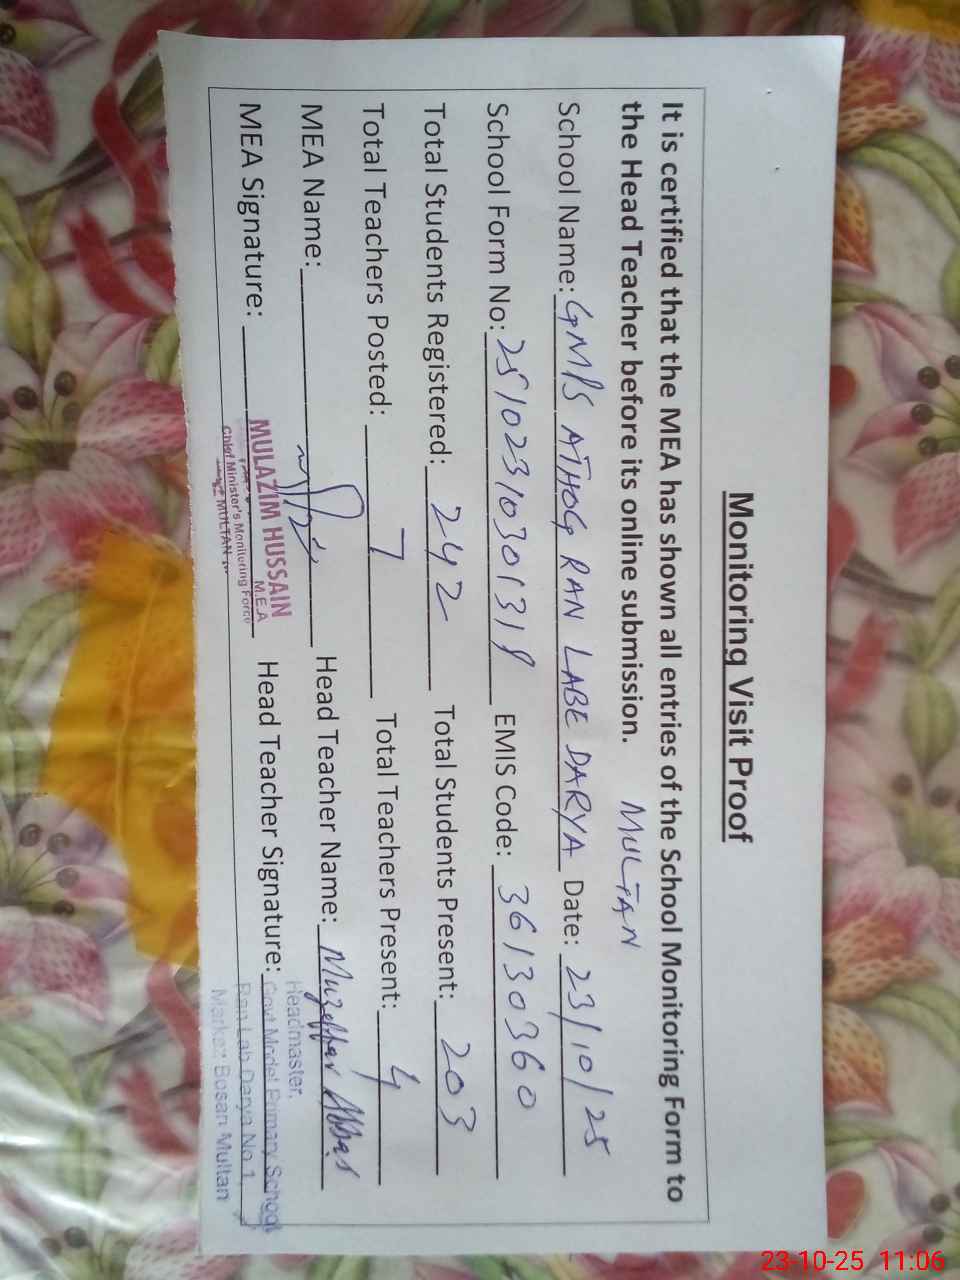 Monitoring Visit Proof
It is certified that the MEA has shown all entries of the School Monitoring Form to
the Head Teacher before its online submission. MULTAN
School Name: GMPS RAN LABE DARYA Date: 23/10/25
School Form No: 25102310301318 EMIS Code: 36130360
Total Students Registered: 242 Total Students Present: 203
Total Teachers Posted: 7 Total Teachers Present: 4
MEA Name: Head Teacher Name: Muzaffar Abbas
MEA Signature: Head Teacher Signature:
MULAZIM HUSSAIN
M.E.A
Chief Minister's Monitoring Force
MULTAN
Headmaster,
Govt Model Primary School
Ran Lab Darya No.1,
Markaz Bosan Multan
23-10-25 11:06